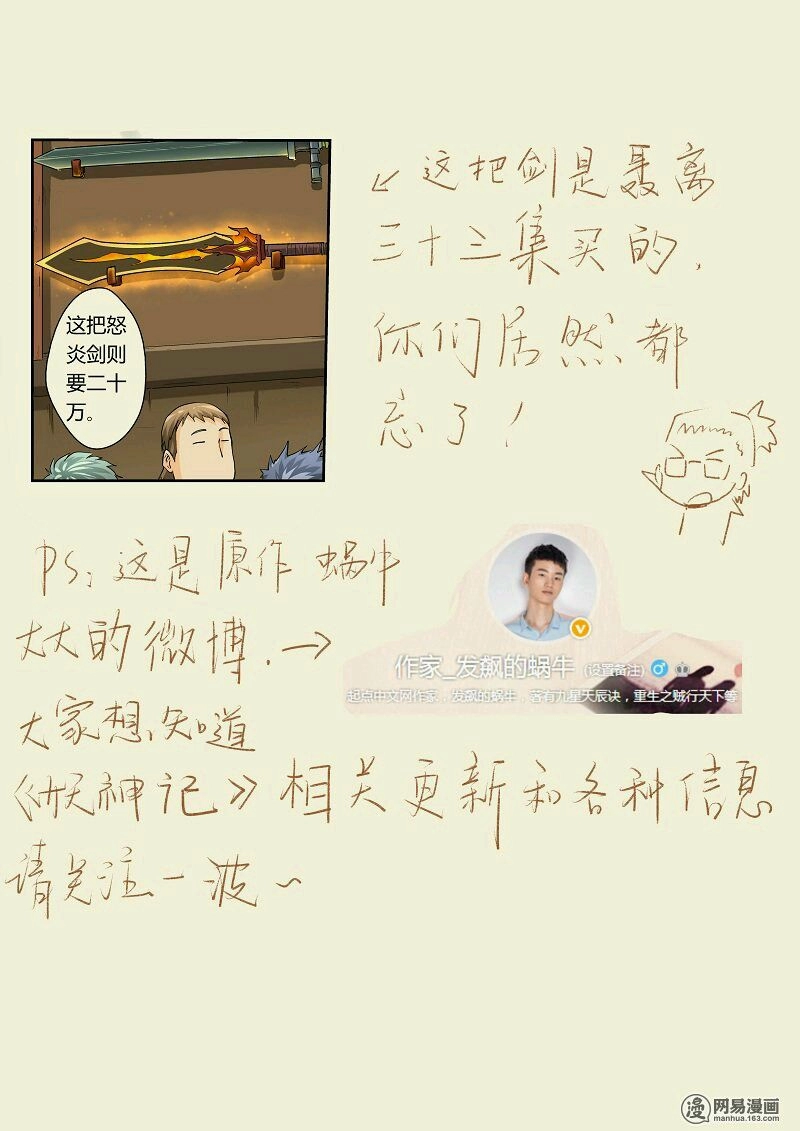 这把怒
炎剑则
要二十
万。
这把剑是聂离
三十三集买的,
你们居然都
忘了!
PS:这是原作 蜗牛
大大的微博.→
作家_发飙的蜗牛 (设置备注)
起点中文网作家,发飙的蜗牛,著有九星天辰诀,重生之贼行天下等
大家想知道
《妖神记》相关更新和各种信息
请关注一波~
漫 网易漫画
manhua.163.com